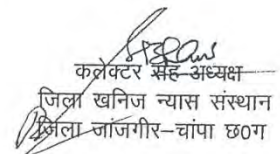 कलेक्टर सह-अध्यक्ष
जिला खनिज न्यास संस्थान
जिला जांजगीर-चांपा छ0ग